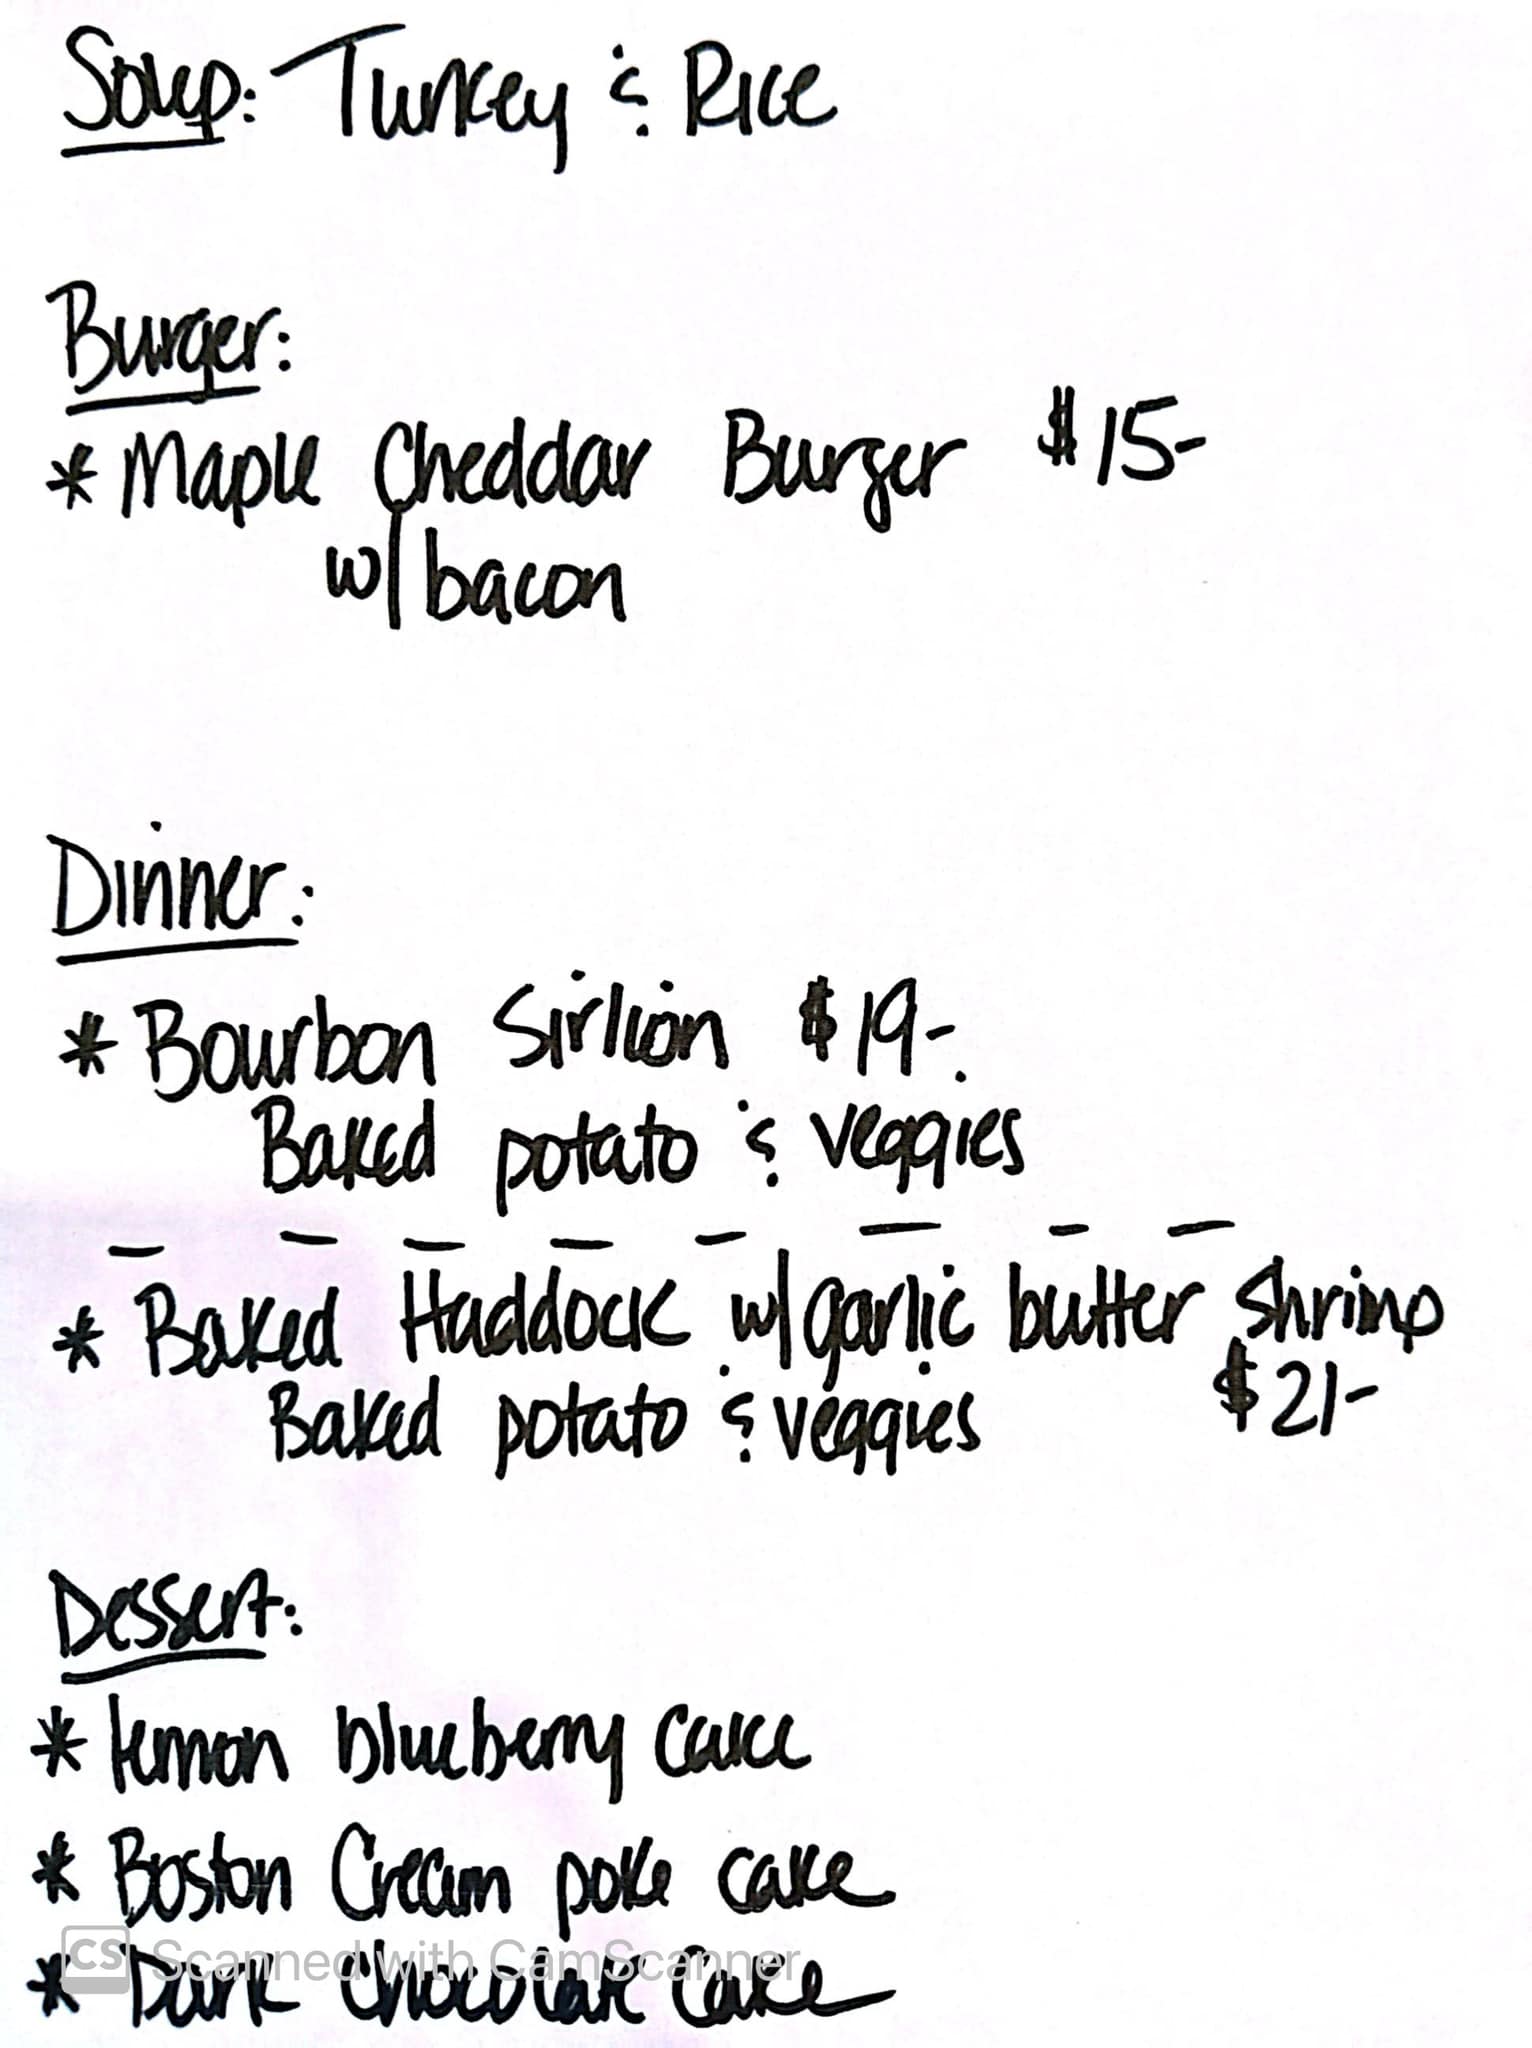 Soup: Turkey & Rice
Burger:
* Maple Cheddar Burger $15-
w/ bacon
Dinner:
* Bourbon Sirlion $19-.
Baked potato & veggies
* Baked Haddock w/ garlic butter shrimp
$21-
Baked potato & veggies
Dessert:
* lemon blueberry cake
* Boston Cream poke cake
* Dark Chocolate Cake
CS Scanned with CamScanner